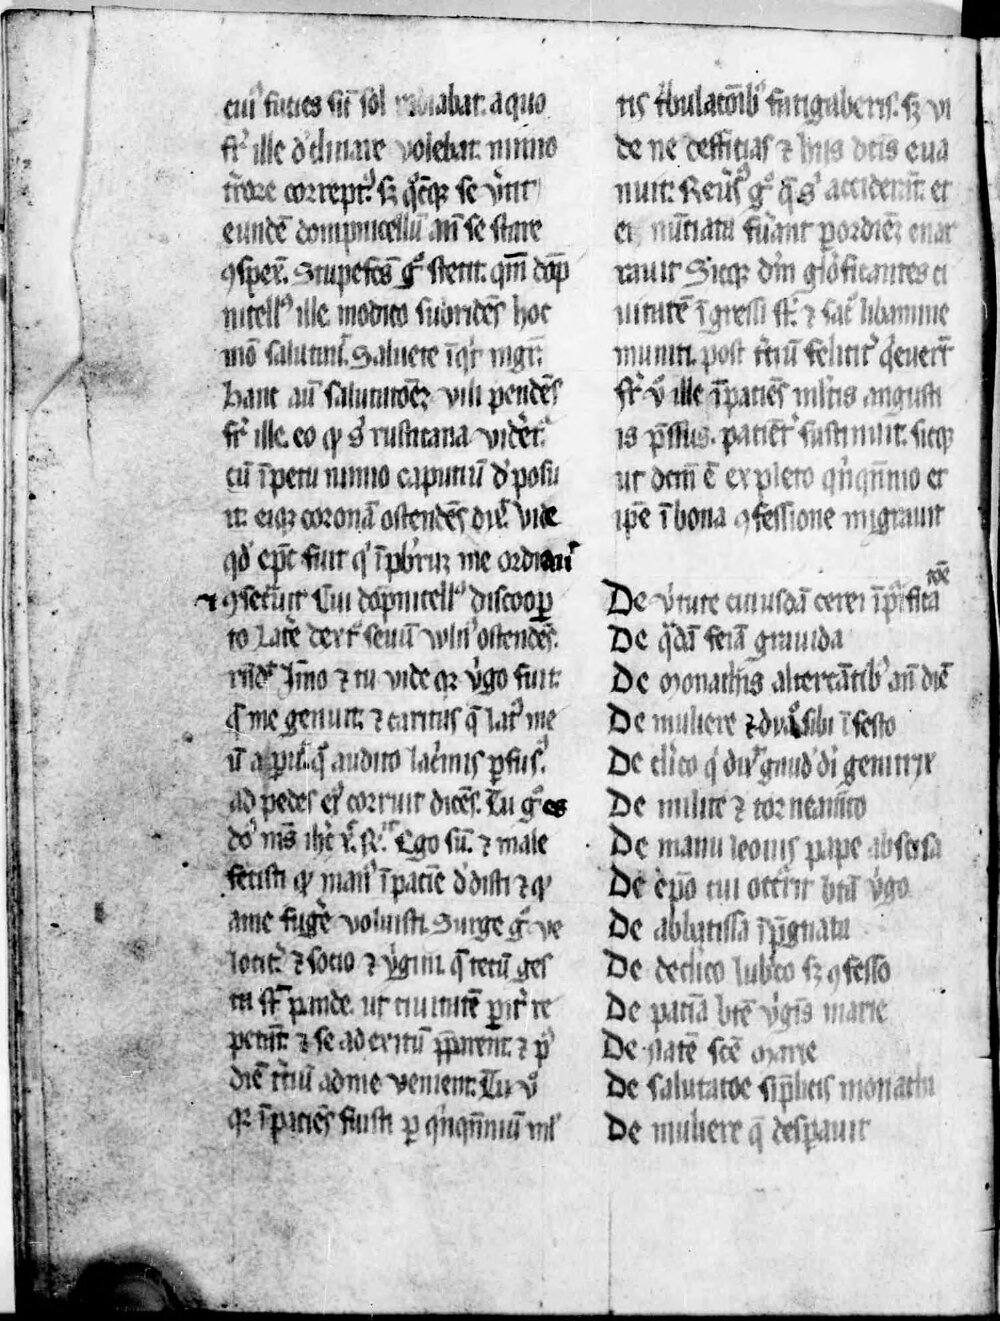 cui᾽ facies sic̄ sol radiabat. a quo
fr̄ ille d̓clinare volebat. nimio
t̓rore corrept᾽. sꝫ q̓cūqꝫ se v̓tit
eundē dompnicellū an̄ se stare
ꝯspex̄. Stupefcs̄ g̊ stetit. qm̄ dōp
nicell᾽ ille modico subridēs hoc
mō salutauit. Saluete īqt̓ mgr̄.
hanc aū salutatōeꝫ vili pendēs
fr̄ ille. eo qꝫ s̓ rusticana vidēt̓.
cū īpetu nimio caputiū d̓posu
it. eiqꝫ coronā ostendēs dix̄. vide
qd̓ ep̄c fuit q̓ ī pb̄rꝫ me ordinauit
ꝯsec̓uit Cui dōpnicell᾽ discoop̲
to lat̓e dext̓ seuū vuln᾽ ostendēs.
rn̄d̓. Immo ⁊ tu vide qꝫ v̓go fuit.
q̄ me genuit. ⁊ caritas q̄ lat᾽ me
ū ap̲uit. q̊ audito lac̓mis p̲fus᾽.
ad pedes ei᾽ corruit dicēs. Tu g̊ es
dn̄s m̄s ihc̄ x̄. Rn̄. Ego sū. ⁊ male
fecisti qꝫ man᾽ ī pacīe d̓disti ⁊ qꝫ
a me fug̓e voluisti. Surge g̊ ve
locit̓. ⁊ socio ⁊ v̓gini. q̄ tecū ges
ta st̄ pande. ut ciuitatē p̲it̓ re
petāt. ⁊ se ad exitū p̄parent. ⁊ p̲᾽
diē t̓ciū ad me venient. Tu v̊
qꝫ īpaciēs fuisti p̲ q̓nqnniū ml̓
tis t̓bulatōib᾽ fatigaberis. sꝫ vi
de ne deficias ⁊ hiis dc̄is eua
nuit. Reūs᾽ g̊ q̄ s̓ accider̄t. et
ei nūciata fuant p̲ ordiēꝫ enar
rauit Sicqꝫ dn̄m glōificantes ci
uitatē īgressi st̄. ⁊ sac̊ libamine
muniti. post t̓ciū felicit̓ q̓euer̄t
fr̄ v̊ ille īpaciēs ml̓tis angusti
is p̄ssus. paciēt̓ sustinuit. sicqꝫ
ut dcm̄ ē expleto q̓nqnnio et
ip̄e ī bona ꝯfessione migrauit
De v̓tute cuiusdā cerei ī pu̓ficatōe
De q̓dā feīa grauida
De monachis altercātib᾽ an̄ diē
De muliere ⁊ duab᾽ sibi ī festo
De cl̓ico q̓ dix̄ gaud̓ d̓i genitrix
De milite ⁊ torneamēto
De manu leonis pape abscisa
De ep̄o cui occ̓rit bt̄a v̓go
De abbatissa īp̄gnata
De de cl̓ico lub̓co sꝫ ꝯfesso
De pacīa bt̄e v̓gīs marie
De statē scē marie
De salutatōe sīplicis monachi
De muliere q̄ despauit